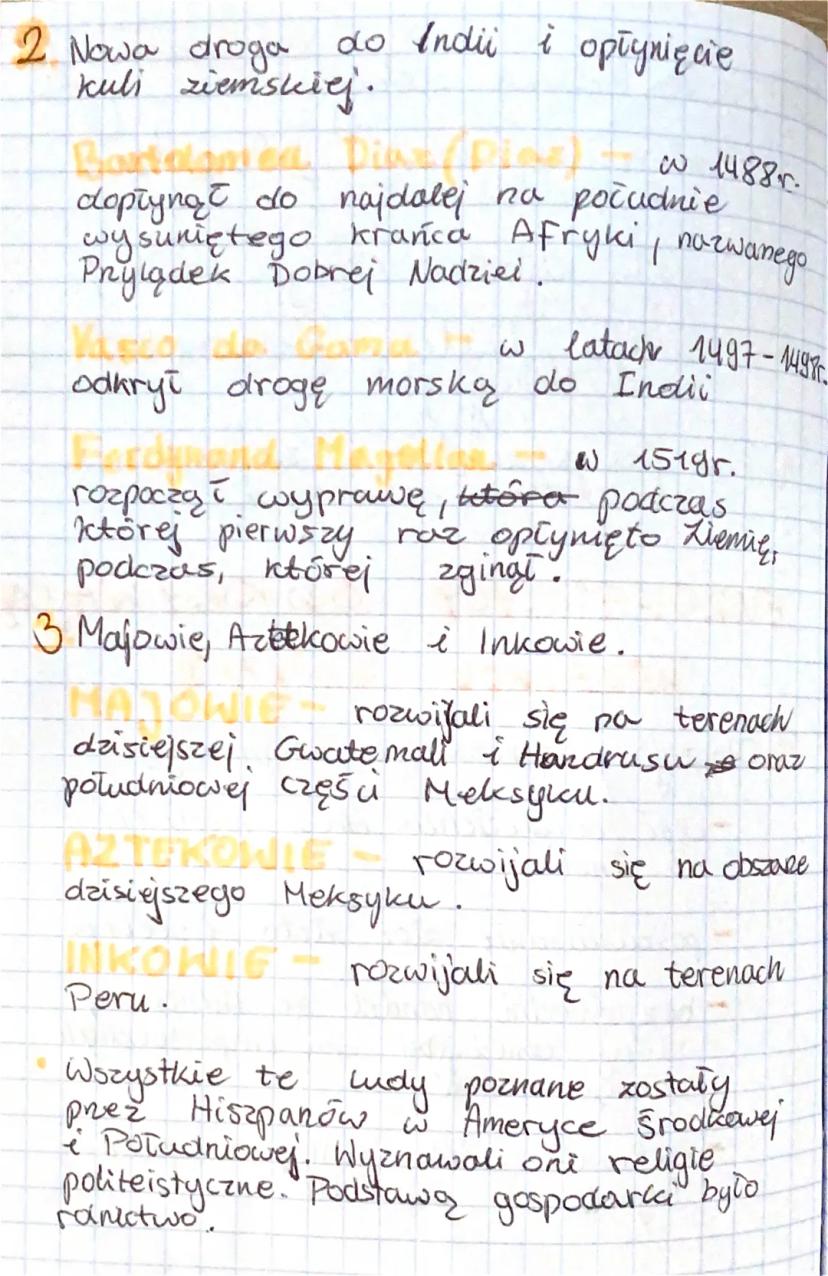 2 Nowa droga do Indii i opłynięcie
kuli ziemskiej.
Bartolomeo Diaz (Dias) - w 1488r.
dopłynął do najdalej na południe
wysuniętego krańca Afryki, nazwanego
Przylądek Dobrej Nadziei.
Vasco da Gama - w latach 1497-1498r.
odkrył drogę morską do Indii
Ferdynand Magellan - w 1519r.
rozpoczął wyprawę, która podczas
której pierwszy raz opłynięto Ziemię,
podczas, której zginął.
3 Majowie, Aztekowie i Inkowie.
MAJOWIE - rozwijali się na terenach
dzisiejszej Gwatemali i Hondrusu oraz
południowej części Meksyku.
AZTEKOWIE - rozwijali się na obszarze
dzisiejszego Meksyku.
INKOWIE - rozwijali się na terenach
Peru.
• Wszystkie te ludy poznane zostały
przez Hiszpanów w Ameryce Środkowej
i Południowej. Wyznawali oni religie
politeistyczne. Podstawą gospodarki było
rolnictwo.